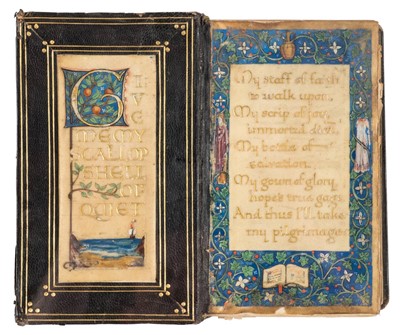 GIVE
ME MY
SCALLOP
SHELL
OF
QVIET
My staff of faith
to walk upon,
My scrip of joy,
immortal diet,
My bottle of
salvation,
My gown of glory,
hope's true gage,
And thus I'll take
my pilgrimage